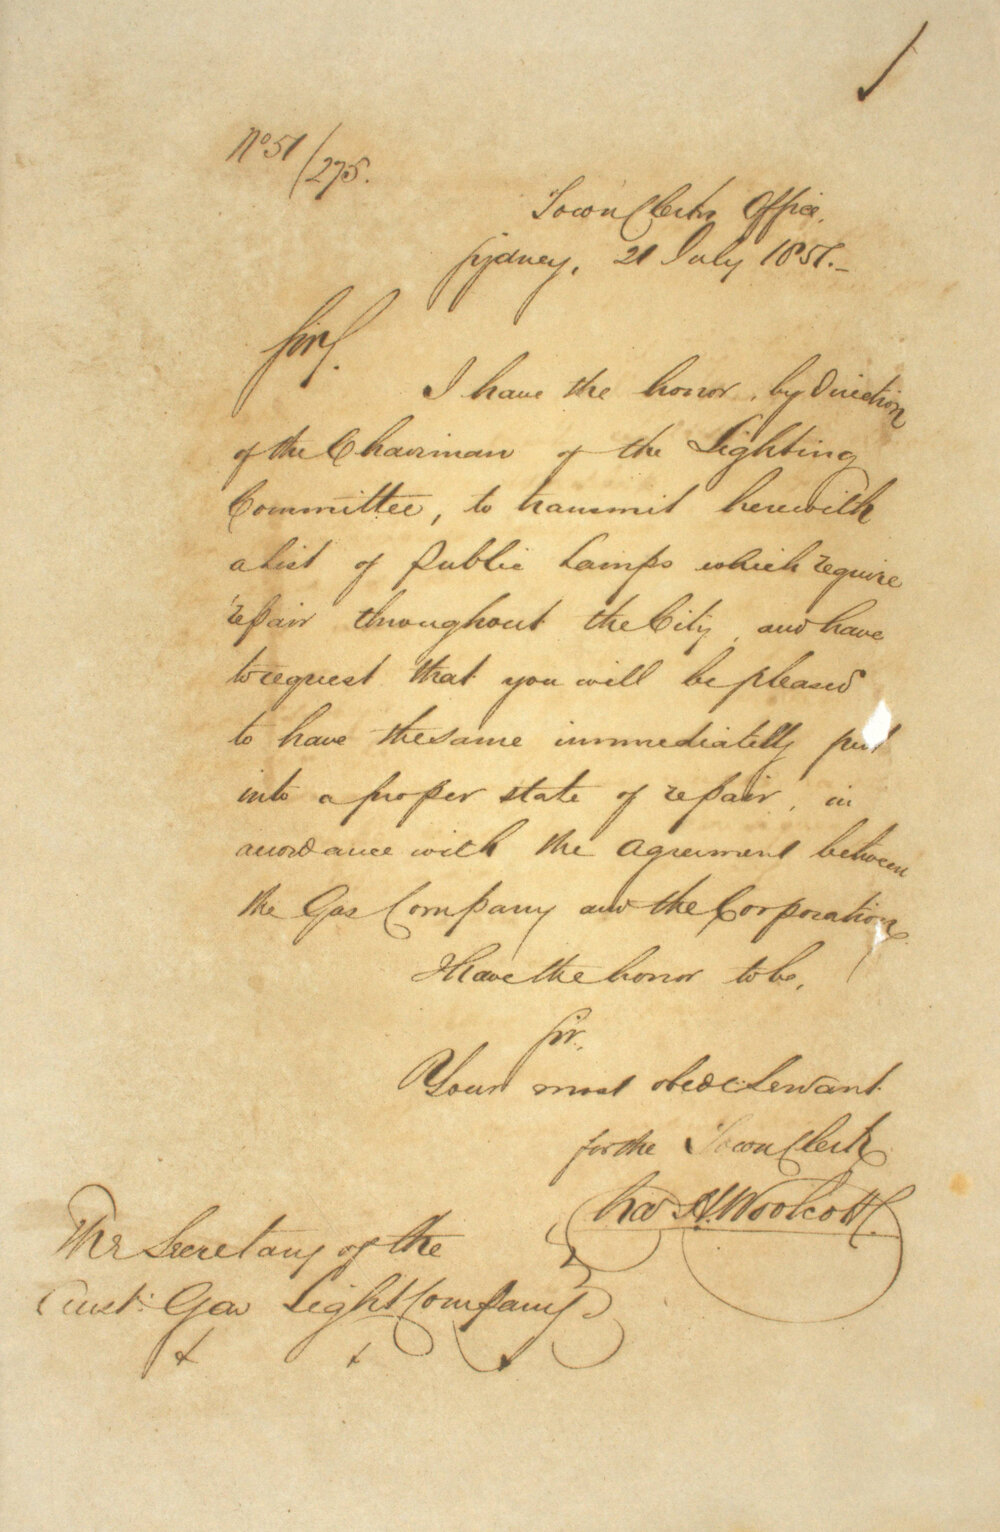 No 51/275.
Town Clerks Office,
Sydney, 21 July 1857.-
Sir,
I have the honor, by Direction
of the Chairman of the Lighting
Committee, to transmit herewith
a list of Public Lamps which require
repair throughout the City, and have
to request that you will be pleased
to have the same immediately put
into a proper state of repair, in
accordance with the Agreement between
the Gas Company and the Corporation.
I Have the honor to be,
Sir,
Your most obedt. Servant
for the Town Clerk
Chas H. Woolcott.
The Secretary of the
Aust: Gas Light Company